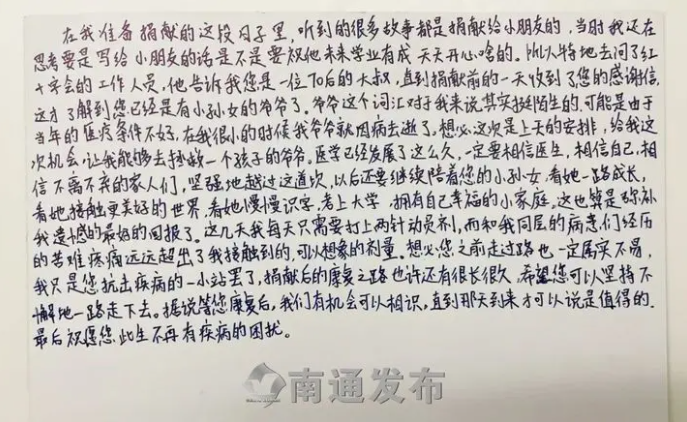 在我准备捐献的这段日子里,听到的很多故事都是捐献给小朋友的,当时我还在
思考要是写给小朋友的话是不是要祝他未来学业有成 天天开心啥的。所以特地去问了红
十字会的工作人员,他告诉我您是一位70后的大叔,直到捐献前的一天收到了您的感谢信
这才了解到您已经是有小孙女的爷爷了,爷爷这个词汇对于我来说其实挺陌生的,可能是由于
当年的医疗条件不好,在我很小的时候我爷爷就因病去逝了,想必这次是上天的安排,给我这
次机会,让我能够去拯救一个孩子的爷爷。医学已经发展了这么久,一定要相信医生,相信自己,相
信不离不弃的家人们,坚强地越过这道坎,以后还要继续陪着您的小孙女,看她一路成长,
看她接触更美好的世界,看她慢慢识字、考上大学、拥有自己幸福的小家庭。这也算是弥补
我遗憾的最好的回报了。这几天我每天只需要打上两针动员剂,而和我同层的病患们经历
的苦难疼痛远远超出了我接触到的,可以想象的剂量。想必您之前走过路也一定属实不易,
我只是您抗击疾病的一小站罢了,捐献后的康复之路也许还有很长很久,希望您可以坚持不
懈地一路走下去。据说等您康复后,我们有机会可以相识,直到那天到来才可以说是值得的.
最后祝愿您此生不再有疾病的困扰。
南通发布